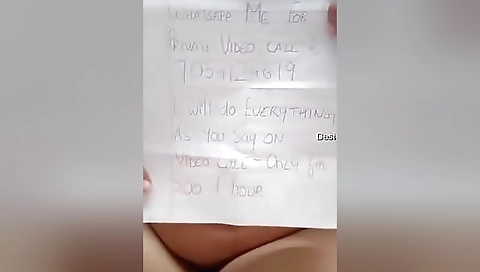 WHATSAPP ME FOR
PRIVATE VIDEO CALL
I will do EVERYTHING,
AS YOU SAY ON
VIDEO CALL - ONLY for
1 HOUR
Desi